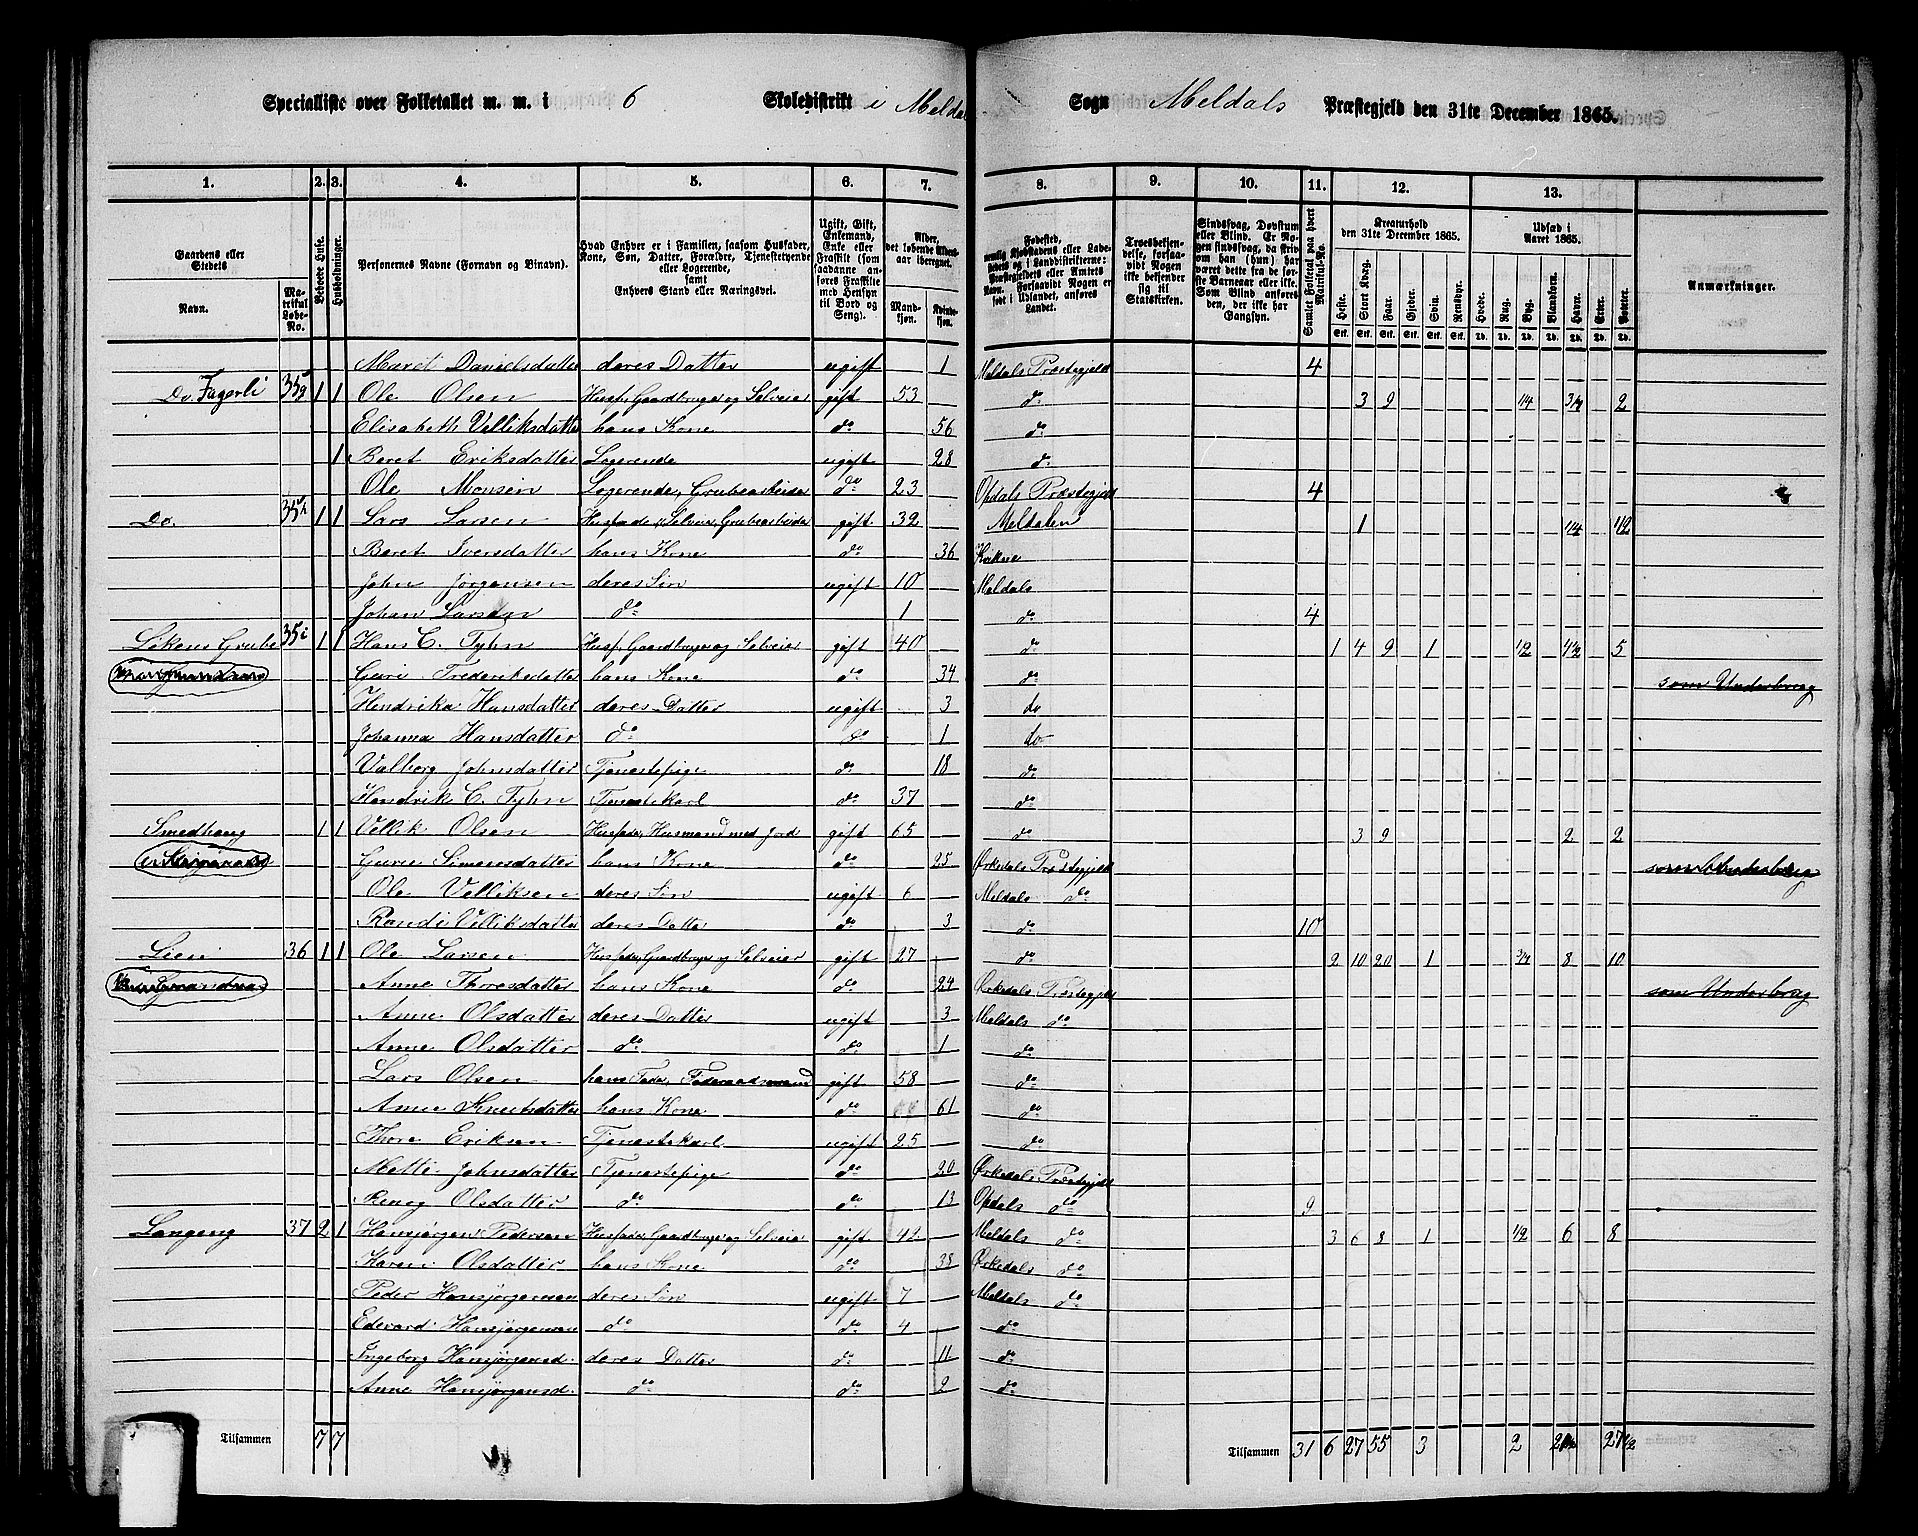 Specialliste over Folketallet m. m. i 6 Skoledistrikt i Meldal Sogn Meldals Præstegjeld den 31te December 1865.
1. 2. 3. 4. 5. 6. 7. 8. 9. 10. 11. 12. 13.
Gaardens eller Stedets
Navn.
Matrikul Løbe-No.
Beboede Huse.
Husholdninger.
Personernes Navne (Fornavn og Binavn).
Hvad Enhver er i Familien, saasom Husfader, Kone, Søn, Datter, Forældre, Tjenestetyende eller Logerende, samt Enhvers Stand eller Næringsvei.
Ugift, Gift, Enkemand, Enke eller Fraskilt (som saadanne anføres Fraskilte med Hensyn til Bord og Seng).
Alder, det løbende Alders-aar iberegnet.
Mandkjøn. Kvindekjøn.
Troesbekjendelse, forsaavidt Nogen ikke bekjender sig til Statskirken.
Sindssvag, Døvstum eller Blind. Er Nogen sindssvag, da hvis om han (hun) har været dette fra de første Barneaar eller ikke. Som Blind anføres den, der ikke har Gangsyn.
Samlet Folketal paa hvert Matrikul-No.
Kreaturhold den 31te December 1865.
Heste. Stort Kvæg. Faar. Gjeder. Svin. Rensdyr.
Udsæd i Aaret 1865.
Hvede. Rug. Byg. Blandkorn. Havre. Erter. Poteter.
Anmærkninger.
Maret Danielsdatter deres Datter ugift 1 Meldals Præstegjeld 4
Do. Fagerli 35g 1 1 Ole Olsen Husf. Gaardbruger og Selveier gift 53 do 3 9 1/4 3 1/4 2
Elisabeth Velliksdatter hans Kone do 56 do
1 Beret Eriksdatter Logerende ugift 28 do
Ole Monsen Logerende, Grubearbeider do 23 Opdals Præstegjeld 4
Do. 35h 1 1 Lars Larsen Husfader, Selveier, Grubearbeider gift 32 Meldalen 1 1/4 1/2
Beret Iversdatter hans Kone do 36 Kvikne
John Jørgensen deres Søn ugift 10 Meldals
Johan Larsen do 1 do 4
Løkens Grube 35i 1 1 Hans C. Tyhn Husf. Gaardbruger og Selveier gift 40 do 1 4 9 1 1/2 4 1/2 5
Guri Frederiksdatter hans Kone do 34 do som Underbrug
Hendrika Hansdatter deres Datter ugift 3 do
Johanna Hansdatter do do 1 do
Valborg Johnsdatter Tjenestepige do 18 do
Hendrik C. Tyhn Tjenestekarl do 37 do
Smedhaug 1 1 Vellik Olsen Husfader, Husmand med Jord gift 65 do 3 9 2 2
Gurie Simensdatter hans Kone do 25 Ørkedals Præstegjeld som Underbrug
Ole Velliksen deres Søn ugift 6 Meldals do
Randi Velliksdatter deres Datter do 3 do 10
Lien 36 1 1 Ole Larsen Husfader, Gaardbruger og Selveier gift 27 do 2 10 20 1 3/4 8 10
Anne Thoresdatter hans Kone do 24 Ørkedals Præstegjeld som Underbrug
Anne Olsdatter deres Datter ugift 3 Meldals do
Anne Olsdatter do do 1 do
Lars Olsen hans Fader, Føderaadsmand gift 58 do
Anne Knutsdatter hans Kone do 61 do
Thore Eriksen Tjenestekarl ugift 25 do
Mette Johnsdatter Tjenestepige do 20 Ørkedals Præstegjeld
Olsdatter do do 13 Opdals do 9
Langeng 37 2 1 Hansjørgen Pedersen Husfader, Gaardbruger og Selveier gift 42 Meldals do 3 6 8 1 1/2 6 8
Karen Olsdatter hans Kone do 38 Ørkedals do
Peder Hansjørgensen deres Søn ugift 7 Meldals do
Edevard Hansjørgensen do do 4 do
Ingeborg Hansjørgensd. deres Datter do 11 do
Anne Hansjørgensd. do do 2 do
Tilsammen 7 7
Tilsammen 31 6 27 55 3 2 27 1/2